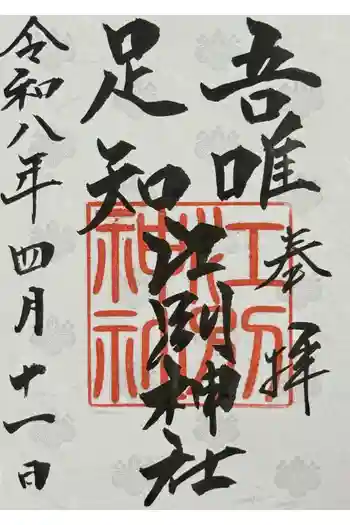 奉拝
吾唯
足知
江別神社
令和八年四月十一日
江別
神社